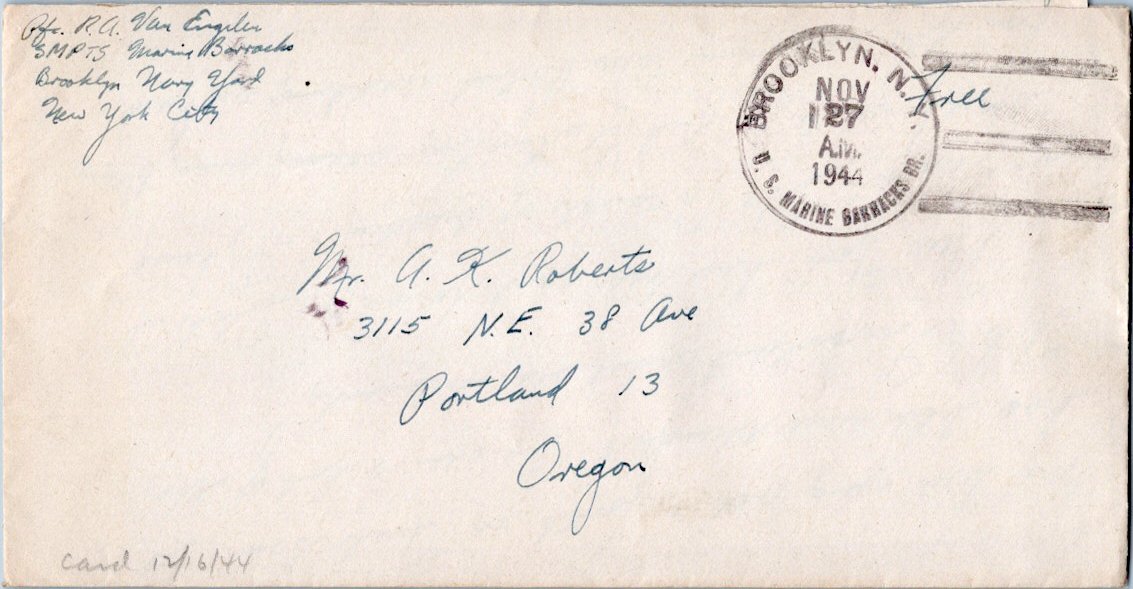 Pfc. R.A. Van Engelen
SMPTS Marine Barracks
Brooklyn Navy Yard
New York City
BROOKLYN, N.Y.
NOV
27
A.M.
1944
U. S. MARINE BARRACKS BR.
Free
Mr. A. K. Roberts
3115 N.E. 38 Ave
Portland 13
Oregon
card 12/16/44